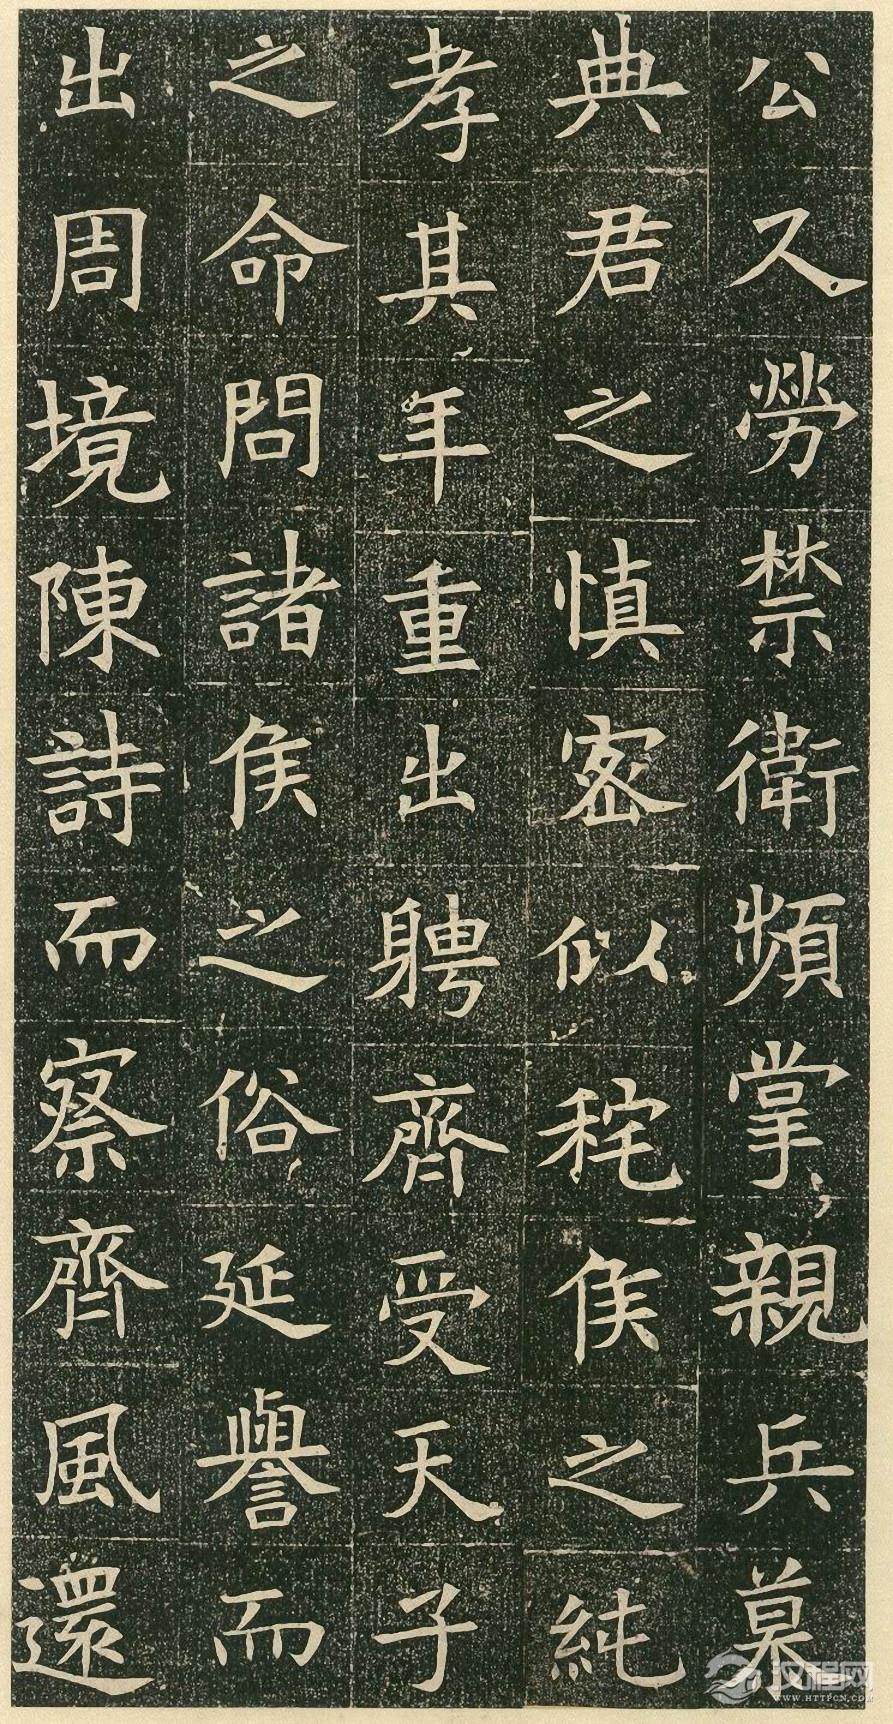 公久勞禁衛頻掌親兵莫
典君之慎密似秺侯之純
孝其年重出聘齊受天子
之命問諸侯之俗延譽而
出周境陳詩而察齊風還
汉程网
WWW.HTTPCN.COM